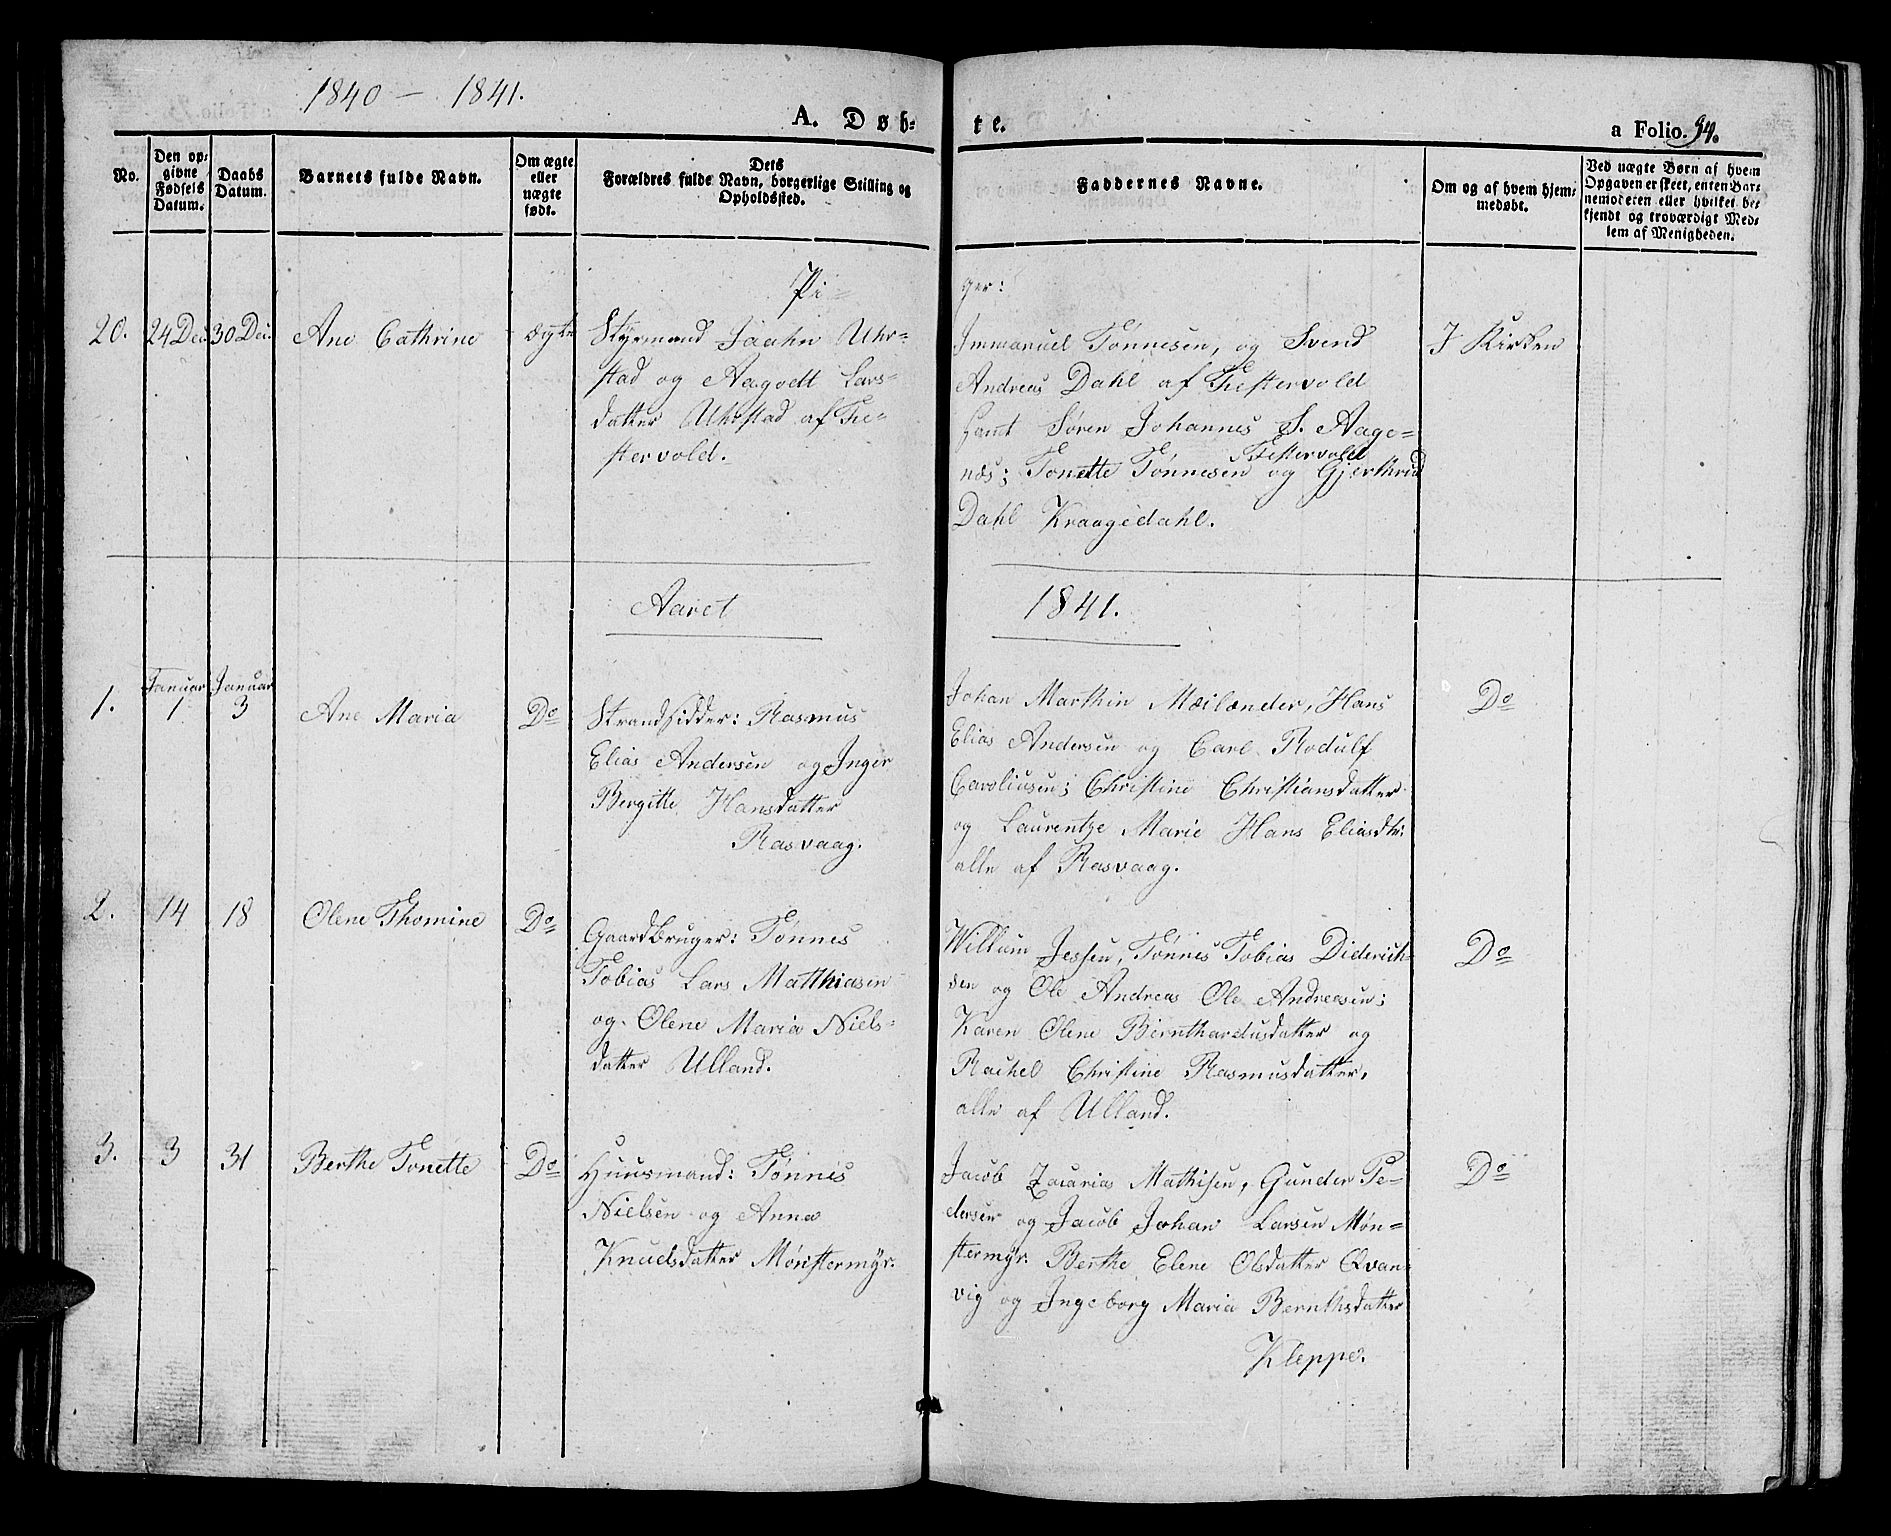 1840 — 1841.
A. Døb-
te.
a Folio. 94.
No.
Den op-
givne
Fødsels
Datum.
Daabs
Datum.
Barnets fulde Navn.
Om ægte
eller
uægte
født.
Dets
Forældres fulde Navn, borgerlige Stilling og
Opholdssted.
Faddernes Navne.
Om og af hvem hjem-
medøbt.
Ved uægte Børn af hvem
Opgaven er skeet, enten Bar-
nemoderen eller hvilket be-
kjendt og troværdigt Med-
lem af Menigheden.
Pi-
ger:
20. 24 Dec. 30 Dec. Ane Cathrine ægte
Styrmand Jaahn Uhr-
stad og Aagodt Lars-
datter Uhrstad af Fie-
stervold.
Immanuel Tønnesen, og Svend
Andreas Dahl af Fiestervold
samt Søren Johannes S. Aage-
Fiestervold
næs; Tonette Tønnesen og Gjerthrud
Dahl Kraagedahl.
I Kirken
Aaret
1841.
1. Januar 1 Januar 3 Ane Maria Do
Strandsidder: Rasmus
Elias Andersen og Inger
Bergitte Hansdatter
Rasvaag.
Johan Marthin Mæilænder, Hans
Elias Andersen og Carl Rodulf
Caroliusen; Christine Christiansdatter
og Laurentze Marie Hans Eliasdtr:
alle af Rasvaag.
Do
2. 14 18 Olene Thomine Do
Gaardbruger: Tønnes
Tobias Lars Matthiasen
og Olene Maria Niels-
datter Ulland.
Willum Jessen, Tønnes Tobias Diderich-
sen og Ole Andreas Ole Andreasen;
Karen Olene Bernthardusdatter og
Rachel Christine Rasmusdatter,
alle af Ulland.
Do
3. 3 31 Berthe Tonette Do
Huusmand: Tønnes
Nielsen og Anna
Knudsdatter Mønstermyr.
Jacob Zacarias Mathisen, Gunder Pe-
dersen og Jacob Johan Larsen Møn-
stermyr. Berthe Elene Olsdatter Qvan-
vig og Ingeborg Maria Bernthsdatter
Kleppe.
Do